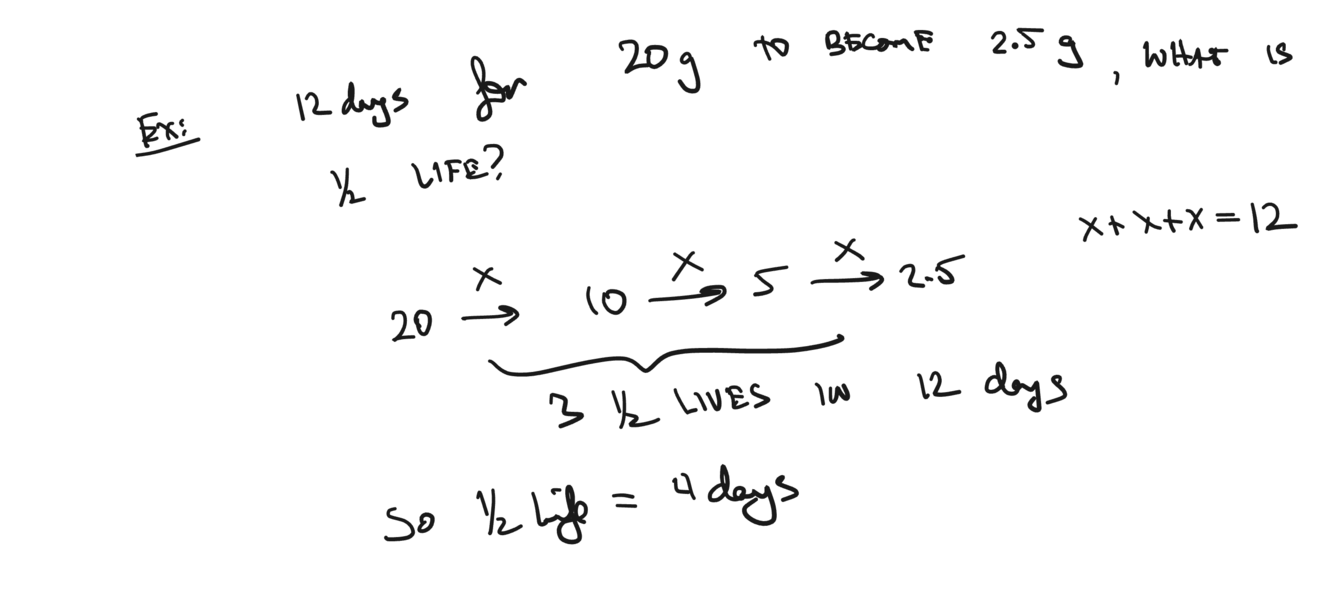 Ex: 12 days for 20g to BECOME 2.5 g, WHAT IS
½ LIFE?
x + x + x = 12
20 →x 10 →x 5 →x 2.5
3 ½ LIVES IN 12 days
So ½ life = 4 days